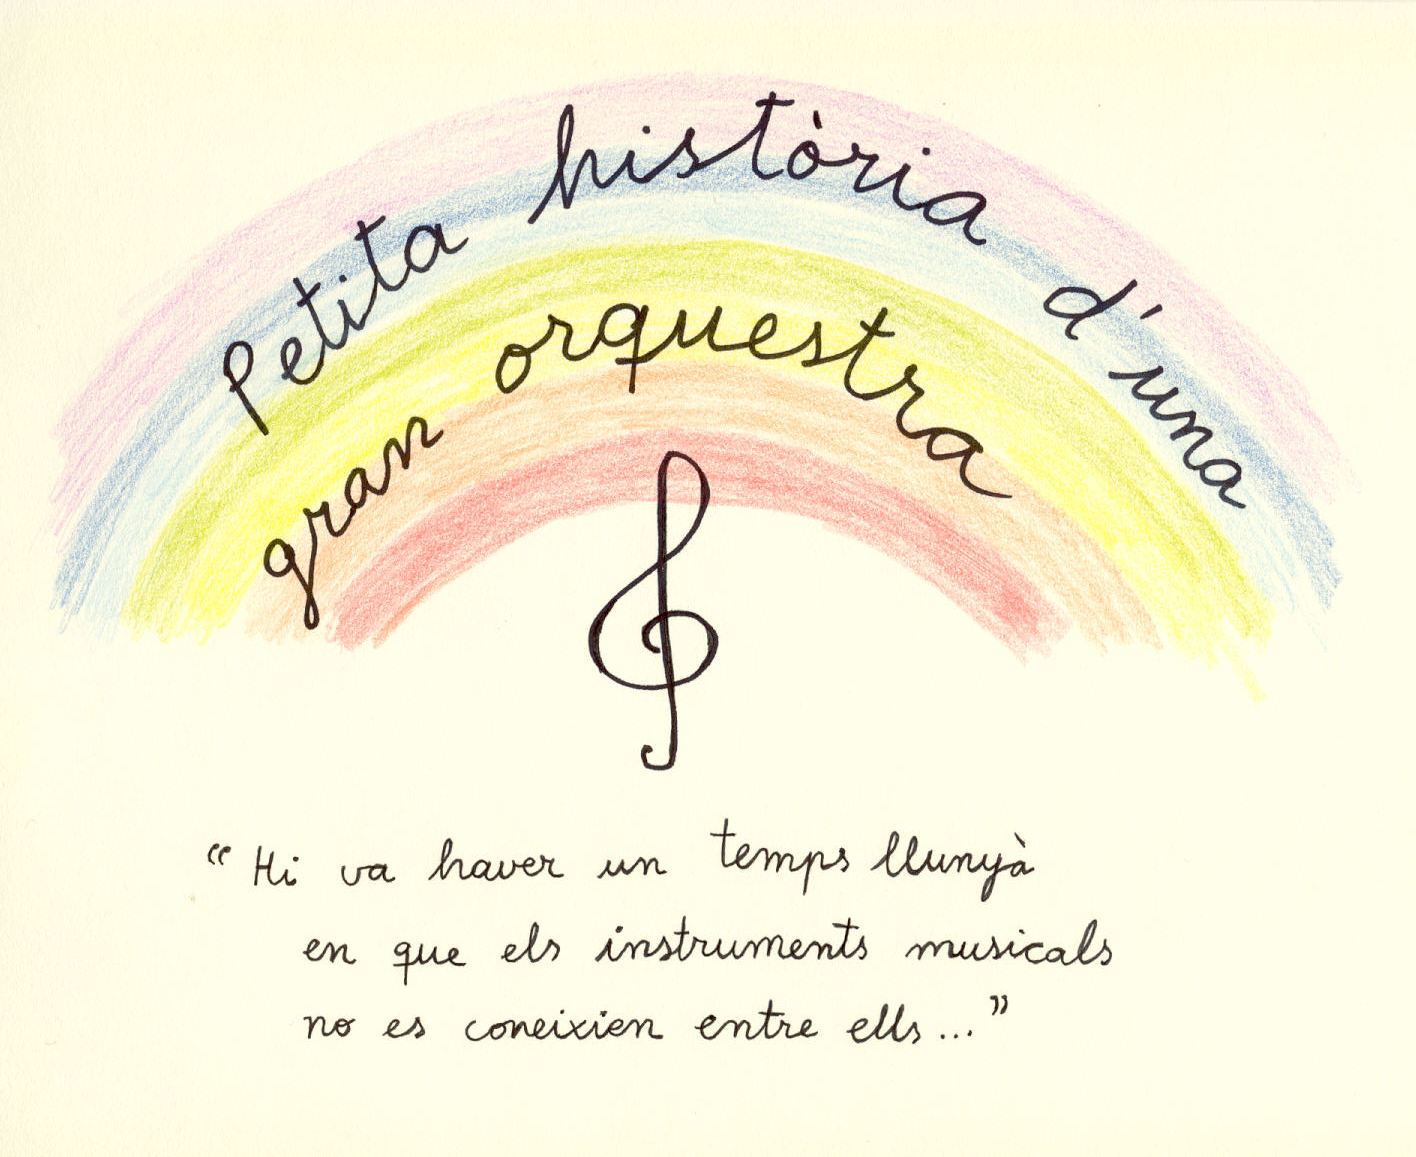 Petita història d'una
gran orquestra
“ Hi va haver un temps llunyà
en que els instruments musicals
no es coneixien entre ells...”